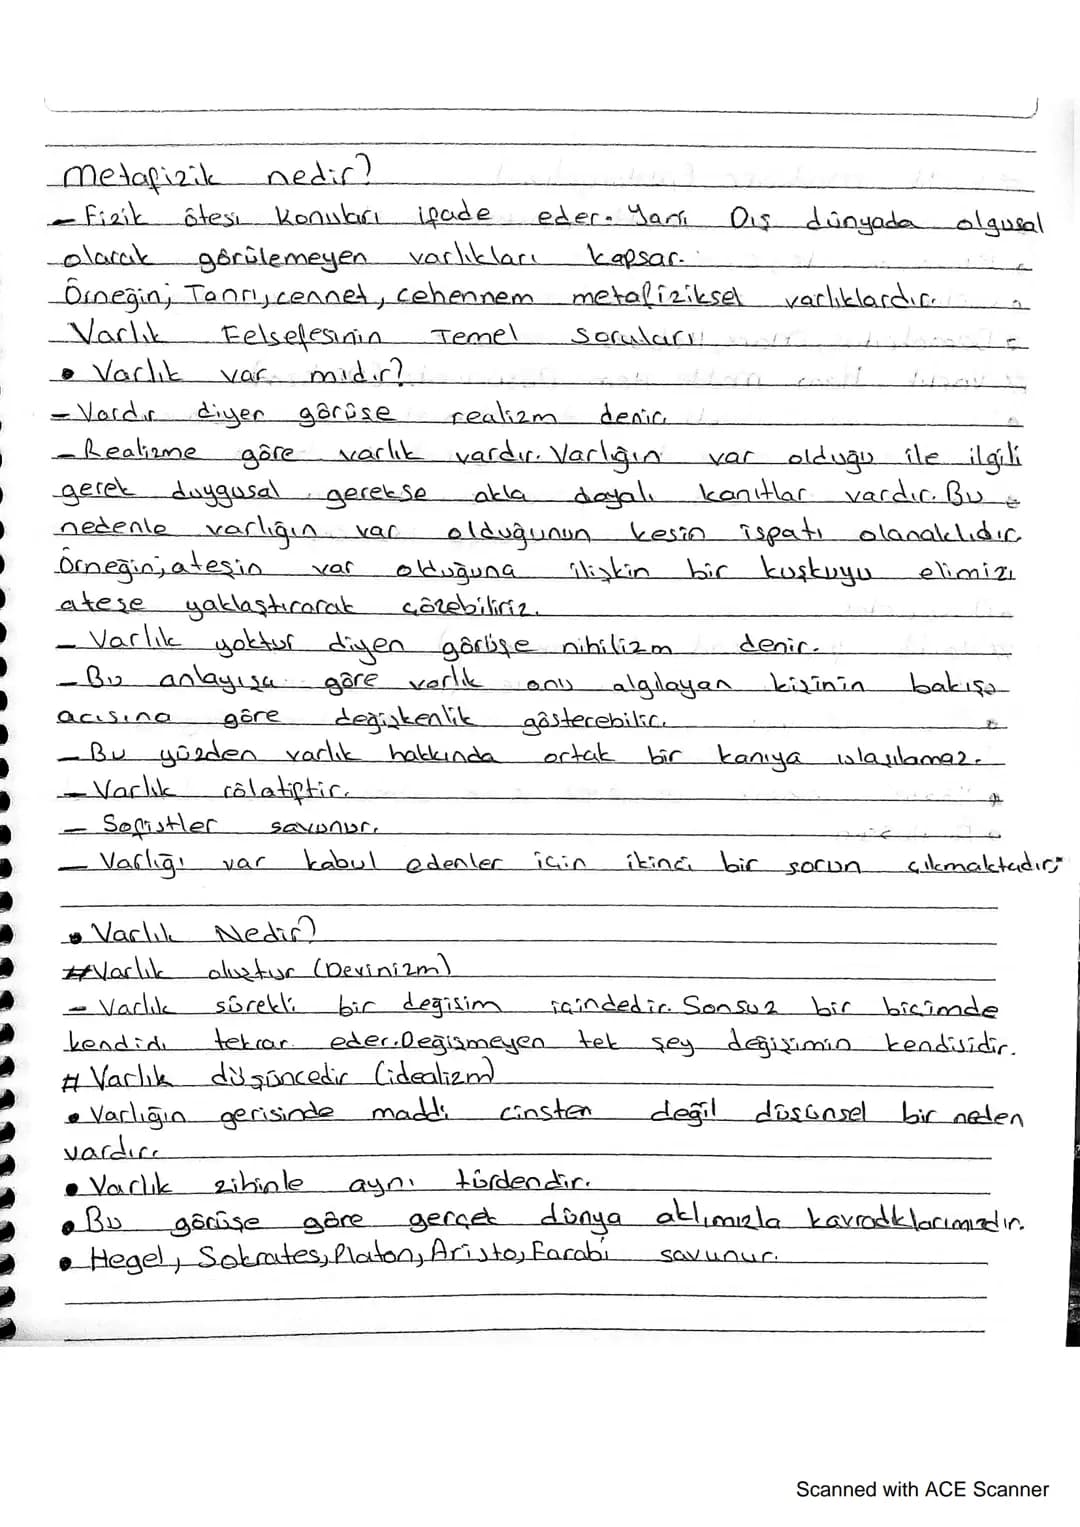 Metafizik nedir?
- Fizik ötesi konuları ifade eder. Yani Dış dünyada olgusal
olarak görülemeyen varlıkları kapsar.
Örneğin; Tanrı, cennet, cehennem metafiziksel varlıklardır.
Varlık Felsefesinin Temel Soruları
• Varlık var mıdır?
- Vardır diyen görüşe realizm denir.
- Realizme göre varlık vardır. Varlığın var olduğu ile ilgili
gerek duygusal gerekse akla dayalı kanıtlar vardır. Bu
nedenle varlığın var olduğunun kesin ispatı olanaklıdır.
Örneğin; ateşin var olduğuna ilişkin bir kuşkuyu elimizi
ateşe yaklaştırarak çözebiliriz.
- Varlık yoktur diyen görüşe nihilizm denir.
- Bu anlayışa göre varlık onu algılayan kişinin bakışa
acısına göre değişkenlik gösterebilir.
- Bu yüzden varlık hakkında ortak bir kanıya ulaşılamaz.
- Varlık rölatiftir.
- Sofistler savunur.
- Varlığı var kabul edenler için ikinci bir sorun çıkmaktadır;
• Varlık Nedir?
# Varlık oluştur (Devinizm)
- Varlık sürekli bir değişim içindedir. Sonsuz bir biçimde
kendidi tekrar eder. Değişmeyen tek şey değişimin kendisidir.
# Varlık düşüncedir (idealizm)
• Varlığın gerisinde maddi cinsten değil düşünsel bir neden
vardır.
• Varlık zihinle aynı türdendir.
• Bu görüşe göre gerçek dünya aklımızla kavradklarımızdır.
• Hegel, Sokrates, Platon, Aristo, Farabi savunur.
Scanned with ACE Scanner